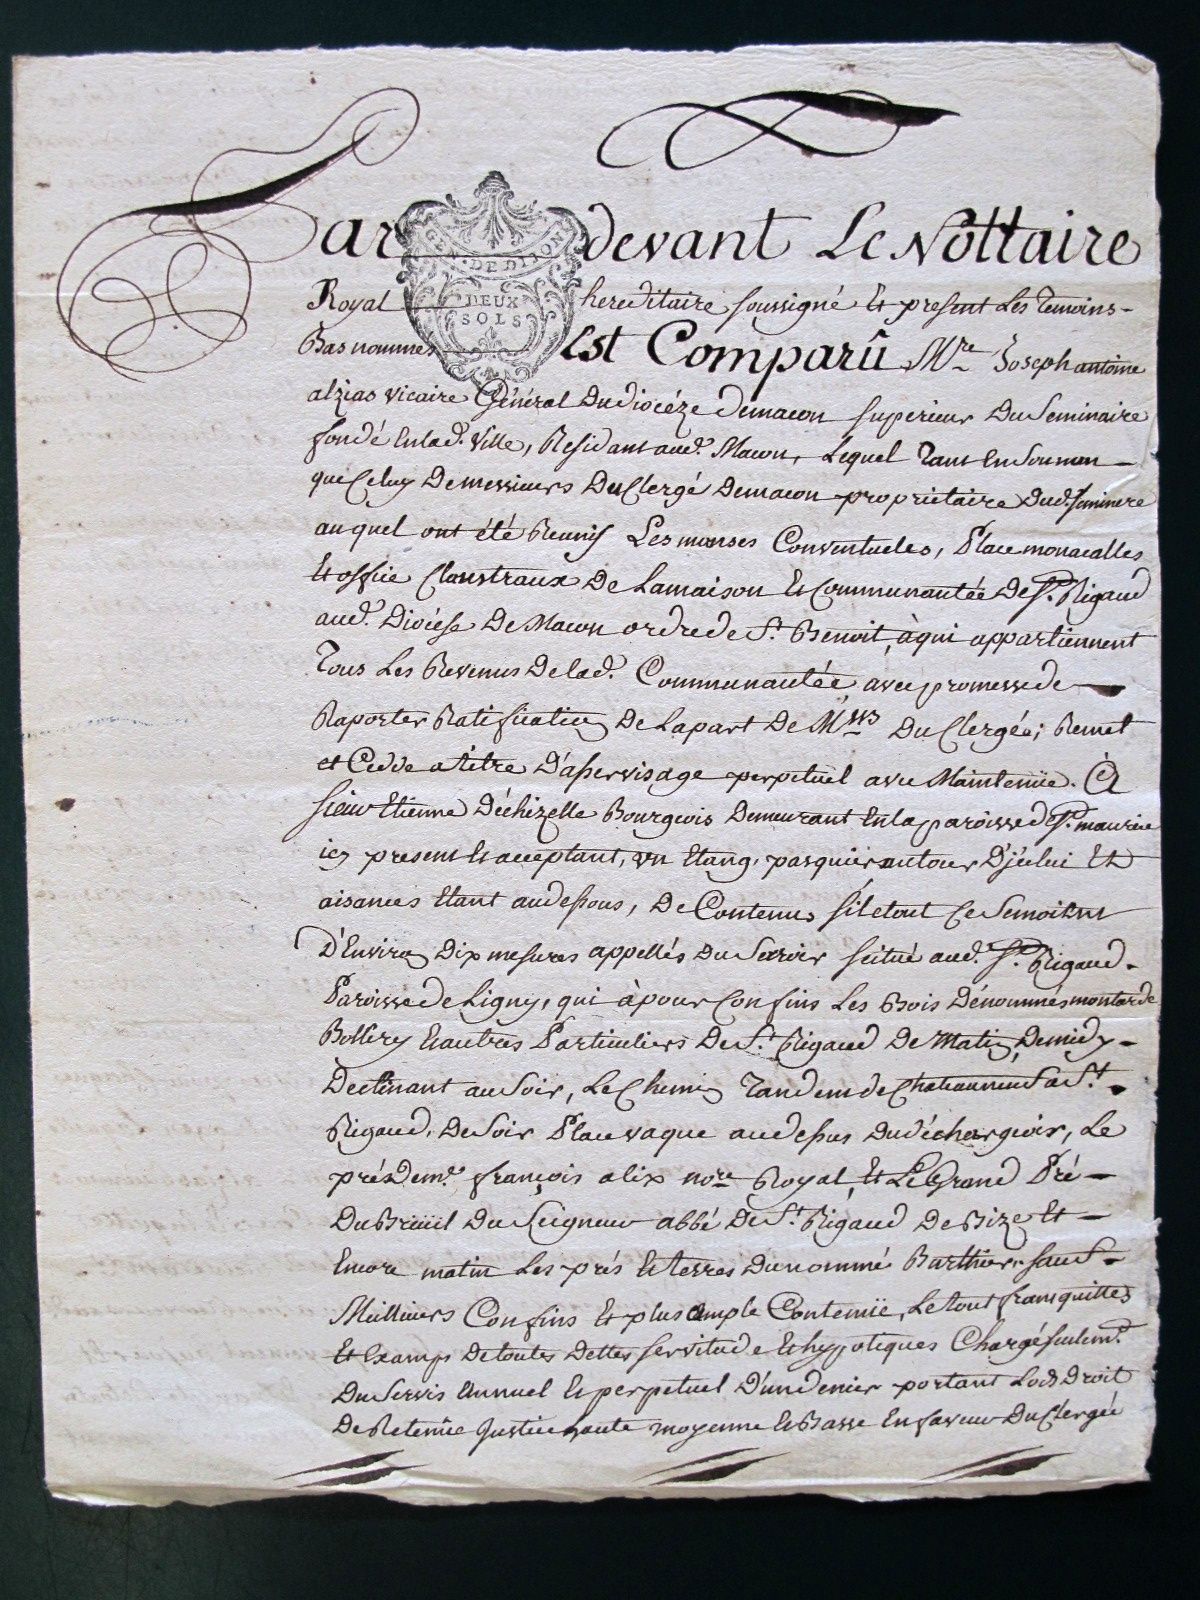 Par devant Le Nottaire
GEN. DE DIJON
DEUX
SOLS
Royal hereditaire soussigné Et present Les Temoins
Bas nommés Est Comparû Mre Joseph antoine
alzias vicaire Général Du diocéze demacon superieur Du Seminaire
fondé En lad. ville, Residant aud. Macon, Lequel Tant En Son nom
que Celuy De messieurs Du Clergé Demacon proprietaire Dud. Seminere
auquel ont été Reunis Les manses Conventueles, Place monacalles
Et office Claustraux De Lamaison Et Communautée De St. Rigaud
aud. Diocése De Macon ordre de St. Benoit, à qui appartiennent
Tous Les Revenus De lad. Communautée, avec promesse de
Raporter Ratification De Lapart De Mrs Du Clergée; Remet
et Cedde a titre D'asservisage perpetuel avec Maintenüe. À
Sieur Etienne Déchizelle Bourgeois Demeurant En la paroisse de St. maurice
icy present Et acceptant, un Etang, pasquier autour D'jcelui Et
aisances Etant audessous, De Contenus Si le tout Ce Semoit
D'Environ Dix mesures appellés Du Seroir scitué aud. St. Rigaud
Paroisse de Ligny, qui à pour Confins Les Bois Dénommés montarde
Bossery Et autres Particuliers De St. Rigaud De Matin, De midy
Declinant au Soir, Le Chemin Tandem de Chateauneuf a St.
Rigaud, De Soir Place vaque audessus Du déchargeoir, Le
prés De me. françois alix nore Royal, Et Le Grand Pré
Du Breüil Du Seigneur abbé De St. Rigaud De Bize Et
Encore matin Les prés Et terres Du nommé Barthier, sauf
Meilleurs Confins Et plus ample Contenüe, Le tout franquittes
Et Examps De toutes Dettes servitude Et hypotiques Chargé seulemt.
Du Servis annuel Et perpetuel D'un denier portant Lods Droit
De Retenüe Justice haute moyenne Et Basse En faveur Du Clergée